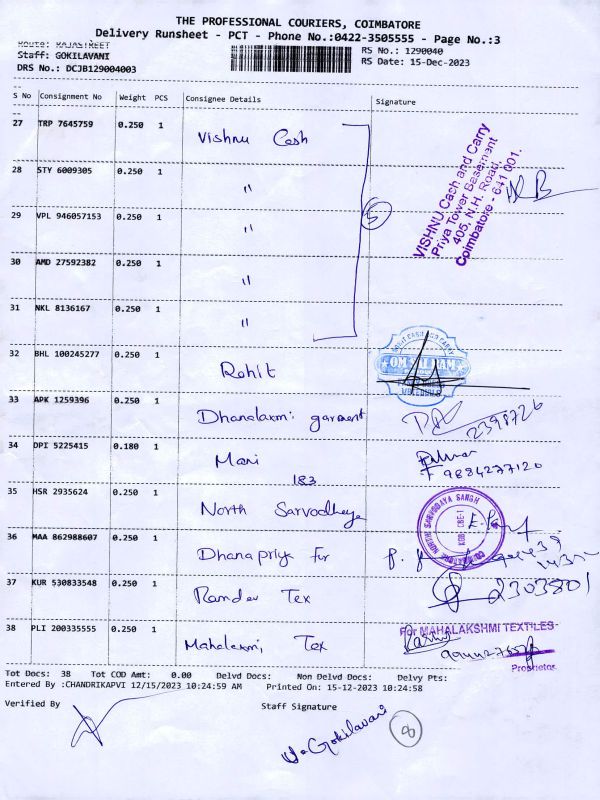 THE PROFESSIONAL COURIERS, COIMBATORE
Delivery Runsheet - PCT - Phone No.:0422-3505555 - Page No.:3
Route: RAJASTREET
Staff: GOKILAVANI
DRS No.: DCJB129004003
RS No.: 1290040
RS Date: 15-Dec-2023
S No Consignment No Weight PCS Consignee Details Signature
27 TRP 7645759 0.250 1 Vishnu Cash
28 STY 6009305 0.250 1 "
29 VPL 946057153 0.250 1 "
30 AMD 27592382 0.250 1 "
31 NKL 8136167 0.250 1 "
5
VISHNU Cash and Carry
Priya Tower Basement
405, N.H. Road,
Coimbatore - 641 001.
32 BHL 100245277 0.250 1 Rohit
OM SAI RAM
33 APK 1259396 0.250 1 Dhanalaxmi garment
2398726
34 DPI 5225415 0.180 1 Mani
9884277120
183
35 HSR 2935624 0.250 1 North Sarvodhaya
COIMBATORE NORTH SARVODAYA SANGH
36 MAA 862988607 0.250 1 Dhanapriya Fir
37 KUR 530833548 0.250 1 Ramdev Tex
2303801
38 PLI 200335555 0.250 1 Mahalaxmi Tex
For MAHALAKSHMI TEXTILES
Proprietor
Tot Docs: 38 Tot COD Amt: 0.00 Delvd Docs: Non Delvd Docs: Delvy Pts:
Entered By :CHANDRIKAPVI 12/15/2023 10:24:59 AM Printed On: 15-12-2023 10:24:58
Verified By Staff Signature
Gokilavani
8